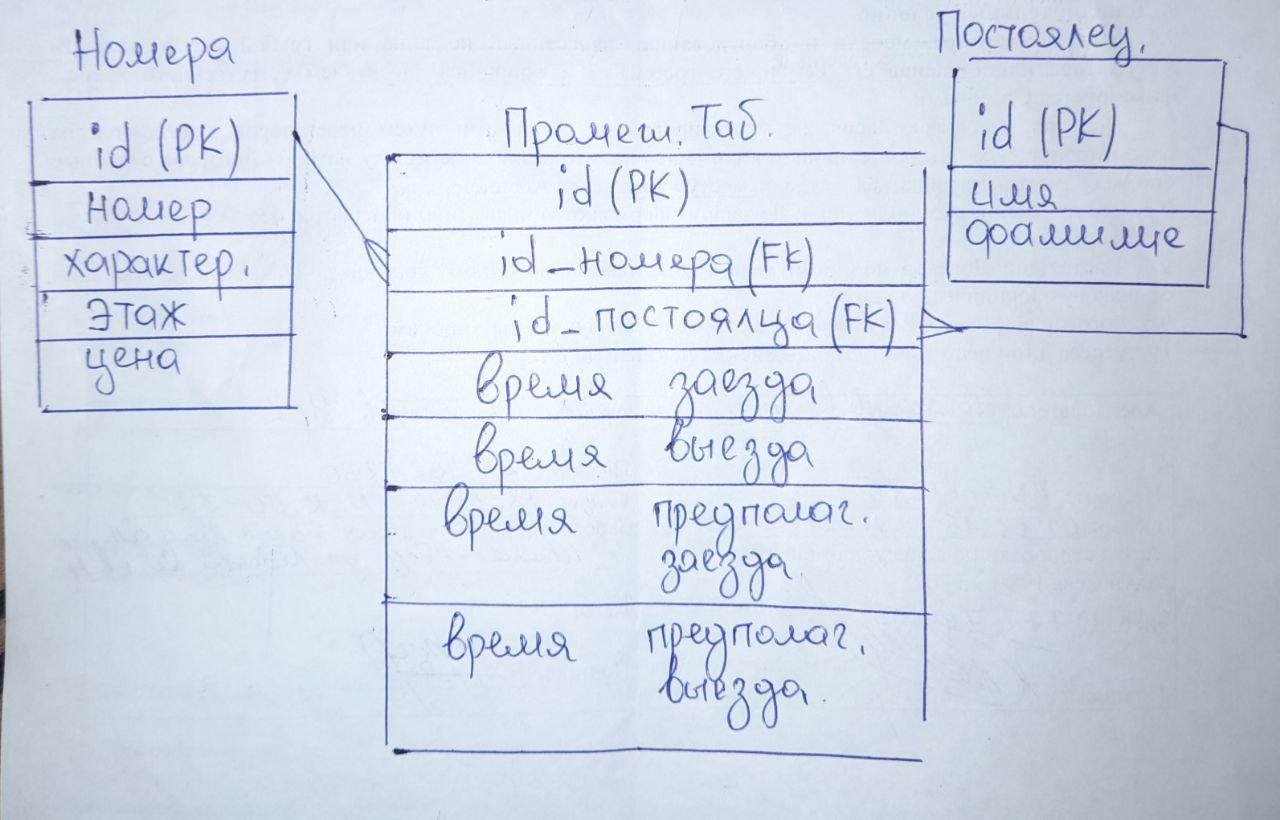 Номера
id (PK)
номер
характер.
этаж
цена
Промеш. Таб
id (PK)
id_номера (FK)
id_постояльца (FK)
время заезда
время выезда
время предполаг.
заезда
время предполаг.
выезда
Постоялец.
id (PK)
имя
фамилие